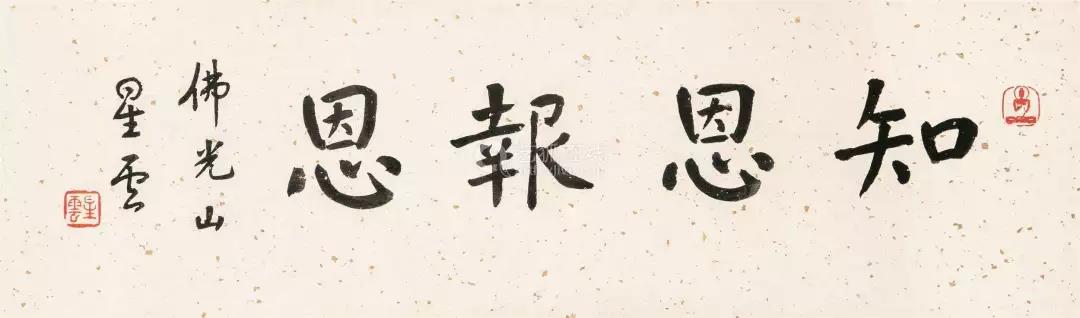 知恩報恩
佛光山
星雲
星雲